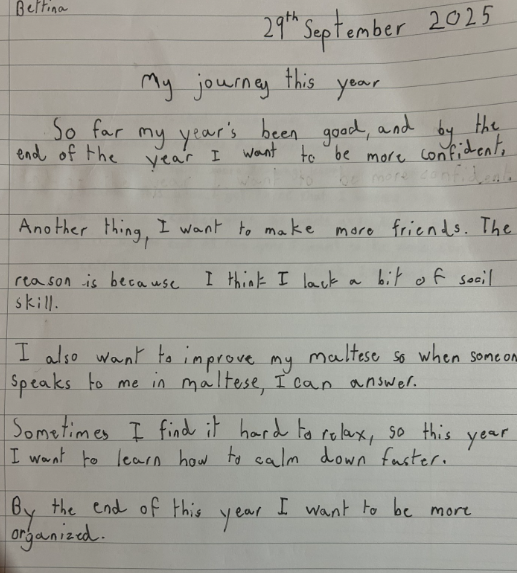 Bettina
29th September 2025
My journey this year
So far my year's been good, and by the
end of the year I want to be more confident.
Another thing, I want to make more friends. The
reason is because I think I lack a bit of socil
skill.
I also want to improve my maltese so when someon
speaks to me in maltese, I can answer.
Sometimes I find it hard to relax, so this year
I want to learn how to calm down faster.
By the end of this year I want to be more
organized.